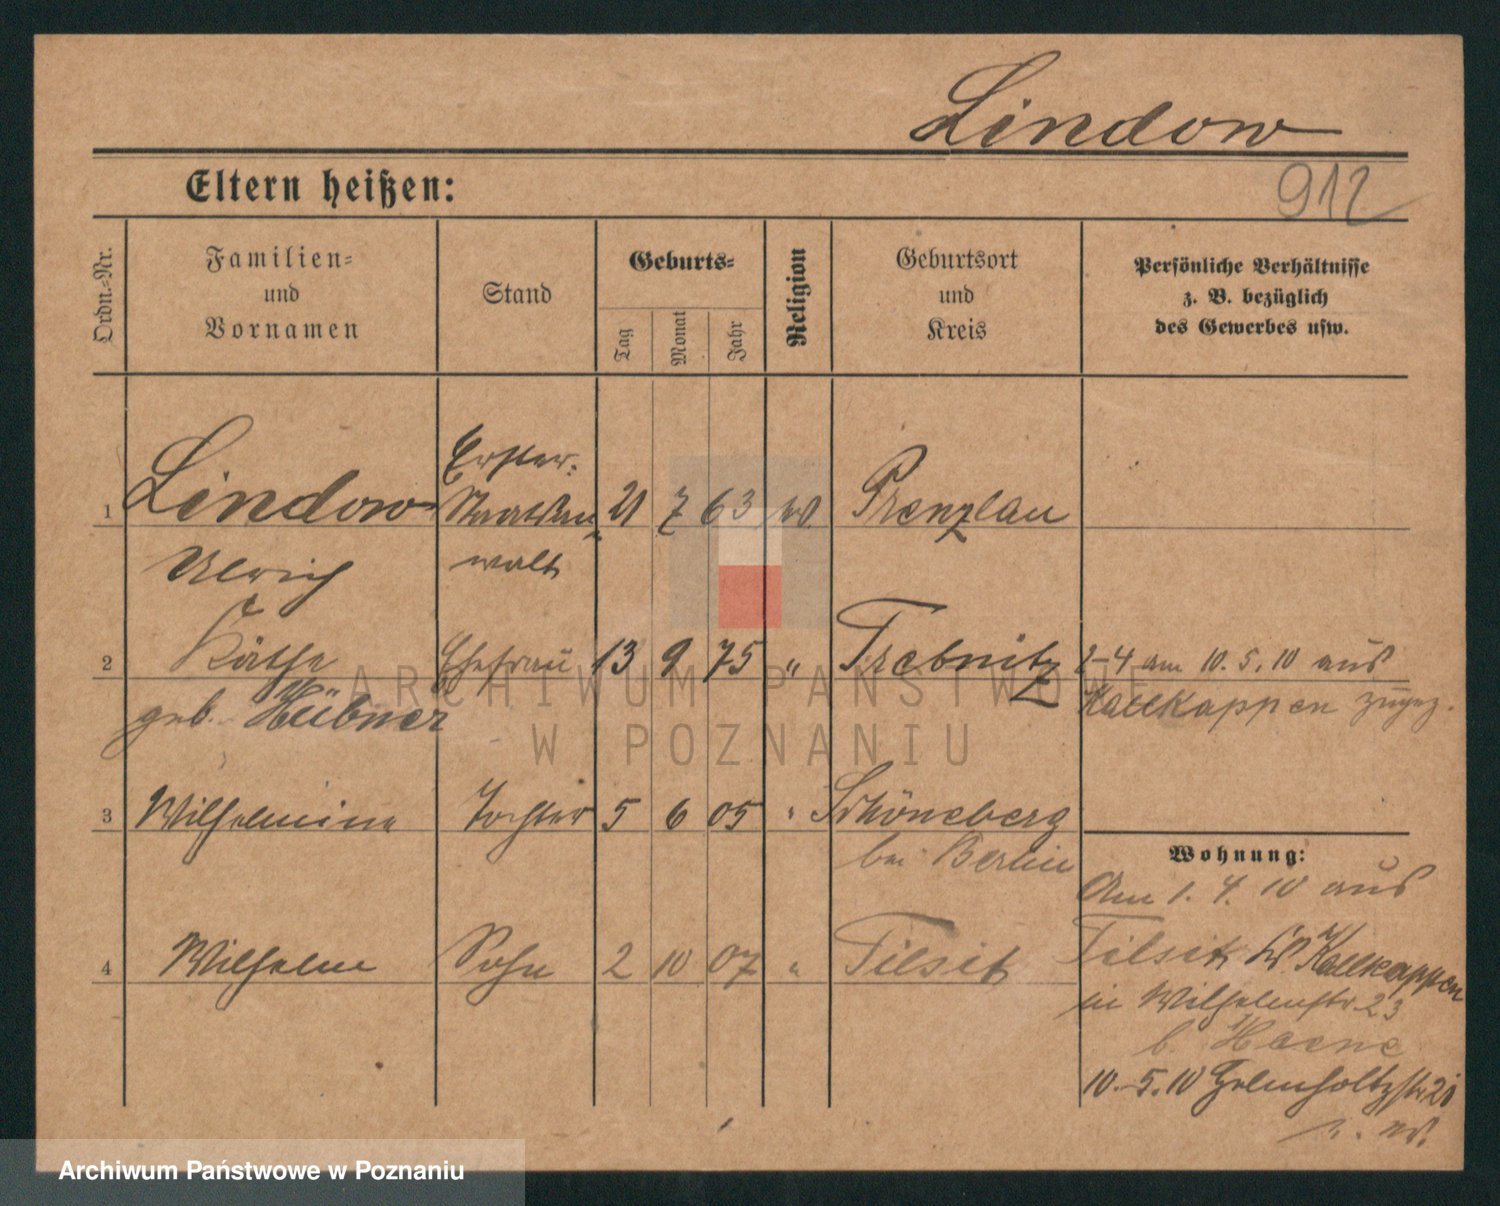 Lindow
Eltern heißen:
912
Ordn.-Nr.
Familien-
und
Vornamen
Stand
Geburts-
Tag
Monat
Jahr
Religion
Geburtsort
und
Kreis
Persönliche Verhältnisse
z. B. bezüglich
des Gewerbes usw.
Erster
1 Lindow Staatsan- 21 7 63 Prenzlau
Ulrich walt
2 Käthe Ehefrau 13 9 75 " Trebnitz 2-4 am 10.5.10 aus
geb. Hübner Kallkappen zugez.
3 Wilhelmine Tochter 5 6 05 " Schöneberg
bei Berlin
Wohnung:
Am 1.4.10 aus
4 Wilhelm Sohn 2 10 07 " Tilsit
Tilsit Kallkappen
in Wilhelmstr. 23
b.
10.5.10 Helmholtzstr.
ARCHIWUM PAŃSTWOWE
W POZNANIU
Archiwum Państwowe w Poznaniu